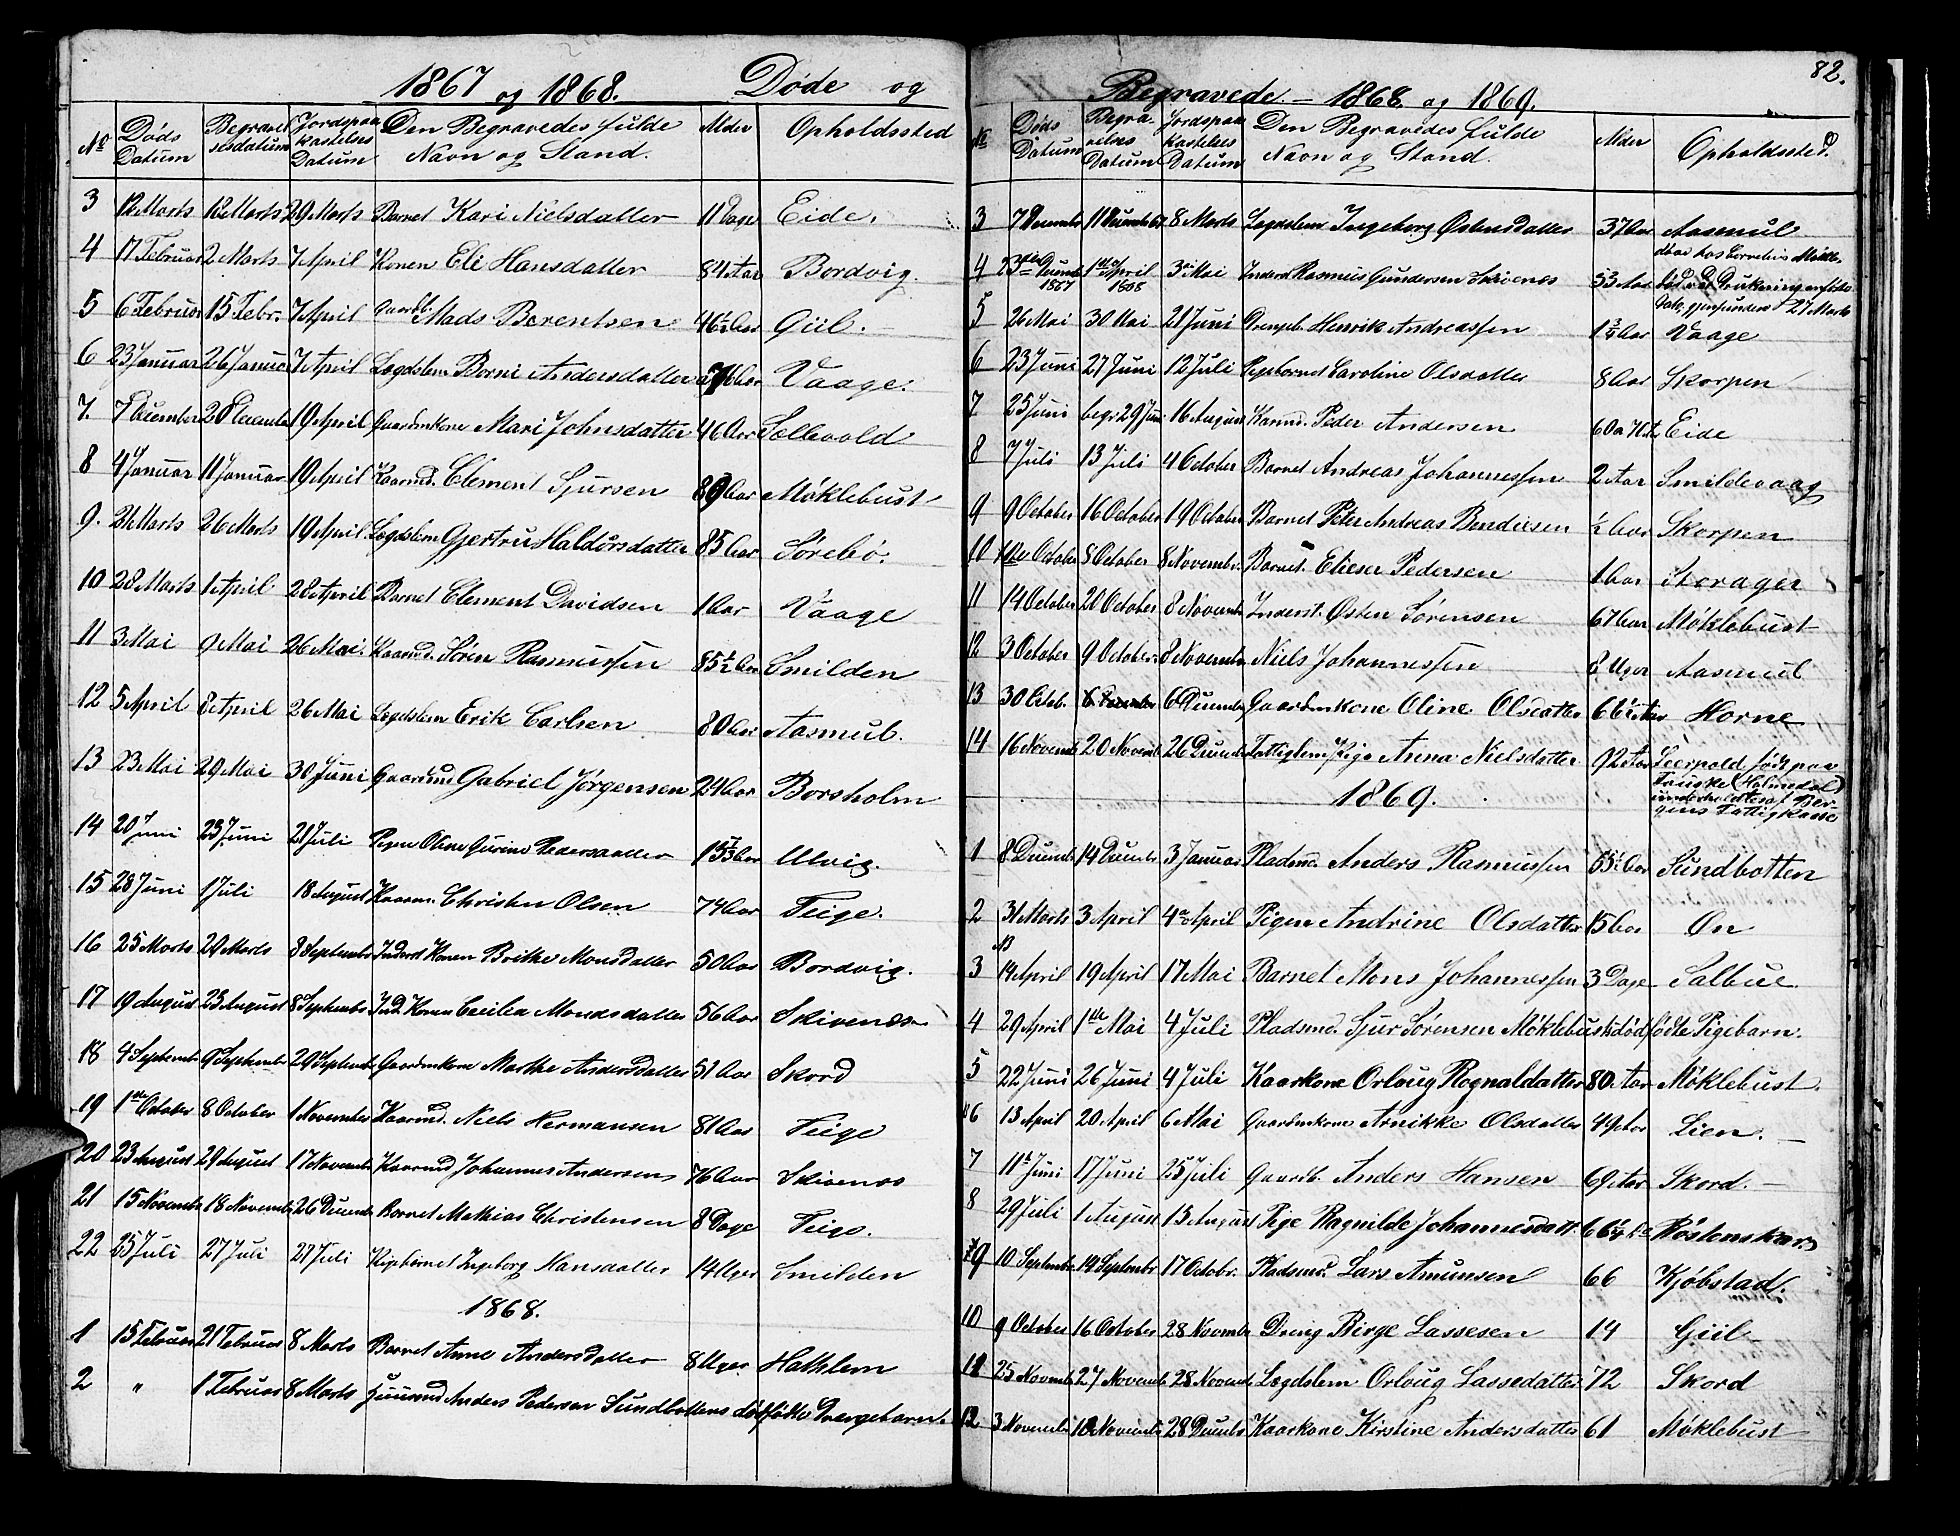 1867 og 1868. Døde og
No Døds Datum Begravelsesdatum Jordspaakastelses Datum Den Begravedes fulde Navn og Stand. Alder Opholdssted
3 12 Marts 13 Marts 29 Marts Barnet Kari Nielsdatter 11 Dage Eide.
4 17 Februar 2 Marts 7 April Konen Eli Hansdatter 84 Aar Bordvig.
5 6 Februar 15 Febr. 7 April Gaardb. Mads Berentsen 46½ Aar Giil.
6 23 Januar 26 Januar 7 April Lægdslem Borni Andersdatter Aar Vaage.
7. 7 December December 19 April Gaardmkone Mari Johnsdatter 46 Aar Sollevold
8 4 Januar 11 Januar 19 April Kaarmd. Clement Sjursen 89 Aar Møklebust
9. 21 Marts 26 Marts 19 April Lægdslem Gjertru Haldorsdatter 85 Aar Sørebø.
10 28 Marts 1 April 28 April Barnet Clement Davidsen 1 Aar Vaage
11 3 Mai 9 Mai 26 Mai. Kaarmd. Søren Rasmussen 85½ Aar Smilden
12 5 April 8 April 26 Mai Lægdslem Erik Carlsen 80 Aar Aasmul.
13 23 Mai 29 Mai 30 Juni Gaardmd Gabriel Jørgensen 24 Aar Borsholm
14 20 Juni 23 Juni 21 Juli Pigen Oline Gurine Pedersdatter Aar Ulvig.
15 28 Juni 1 Juli 18 August Kaarm. Christen Olsen 74 Aar Teige.
16 25 Marts 29 Marts 8 September Inderst Konen Brithe Monsdatter 50 Aar Bordvig.
17 19 August 23 August 8 September Ind. Konen Cecilia Monsdatter 56 Aar Skivenes
18 4 September 9 September 29 September Gaardmkone Marthe Andersdatter 51 Aar Skord
19 1ste October 8 October 1 November Kaarmd. Niels Hermansen 81 Aar Teige
20 23 August 29 August 17 November Kaarmd Johannes Andersens 76 Aar Skivenes
21 15 November 18 November 26 December Barnet Mathias Christensen 8 Dage Teige.
22 25 Juli 27 Juli 27 Juli Pigebarnet Ingeborg Hansdatter 14 Uger Smilden
1868.
1 15 Februar 21 Februar 8 Marts Barnet Anne Andersdatter 8 Uger Hathlem
2 " 1 Februar 8 Marts Huusmd Anders Pedersen Sundbottens dødfødte Drengebarn.
82.
Begravede. – 1868 og 1869.
No Døds Datum Begravelses Datum Jordspaakastelses Datum Den Begravedes fulde Navn og Stand. Alder Opholdssted.
3 7 December 11 December 67 8 Marts Lægdslem Ingeborg Østensdatter 37 Aar Aasmul
4 23de December 1867 1ste April 1868 3die Mai Inderst Rasmus Gundersen Skivenes 53 Aar
5 26 Mai 30 Mai 21 Juni Drengeb. Henrik Andreassen Aar Vaage
6 23 Juni 27 Juni 12 Juli Pigebarnet Caroline Olsdatter 8 Aar Skorpen
7 25 Juni begr. 29 Juni 16 August Kaarmd. Peder Andersen 60 Eide
8 7 Juli 13 Juli 4 October Barnet Andreas Johannessen 2 Aar Smildevaag
9 9 October 16 October 19 October Barnet Peter Andreas Bendixsen ½ Aar Skorpen
10 1ste October 8 October 8 Novembr. Barnet. Elieser Pedersen 1 Aar Storager
11 14 October 20 October 8 November Inderst. Østen Sørensen 67 Aar Møklebust
12 3 October 9 October. 8 November Niels Johannessen 8 Uger Aasmul
13 30 Octob. 6 December 6 December Gaardmkone Oline Olsdatter 66½ Aar Horne
14 16 November 20 November 26 December Fattiglem, Pige Anna Nielsdatter 92 Aar Leerpold født paa
(Holmedal)
underholdtes af Bergens Fattigkasse
1869.
1 8 December 14 December 3 Januar Pladsmd. Anders Rasmussen 55½ Aar Sundbotten
2 31 Marts 3 April 4de April Pigen Andrine Olsdatter 15 Aar Øn
3 14 April 19 April 17 Mai Barnet Mons Johannessen 3 Dage Salbue
4 29 April 1ste Mai 4 Juli Pladsmd. Sjur Sørensen Møklebusts dødfødte Pigebarn.
5 22 Juni 26 Juni 4 Juli Kaarkone Orloug Rognaldatter 80 Aar Møklebust.
6 13 April 20 April 6 Mai Gaardmkone Arnikke Olsdatter 49 Aar Lien.
7 11te Juni 17 Juni 25 Juli Gaardb. Anders Hansen 69 Aar Skord.
8 29 Juli 1 August 13 August Pige Ragnilde Johannesdatt. 66½ Røstenskar
9 10 September 14 September 17 Octobr. Pladsmd. Lars Amunsen 66 Kjøbstad.
10 9 October 16 October 28 November Dreng Birge Lassesen 14 Giil
11 25 November 27 November 28 November Lægdslem Orloug Lassedatter 72 Skord
12. 3 November 10 November 28 December Kaarkone Kirstine Andersdatter 61 Møklebust